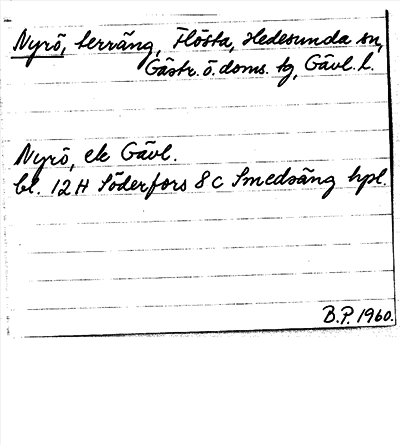 Nyrö, terräng, Hösta, Hedesunda sn,
Gästr. ö. doms. tg, Gävl. l.
Nyrö, ek Gävl.
bl. 12 H Söderfors 8 c Smedsäng hpl.
B.P. 1960.